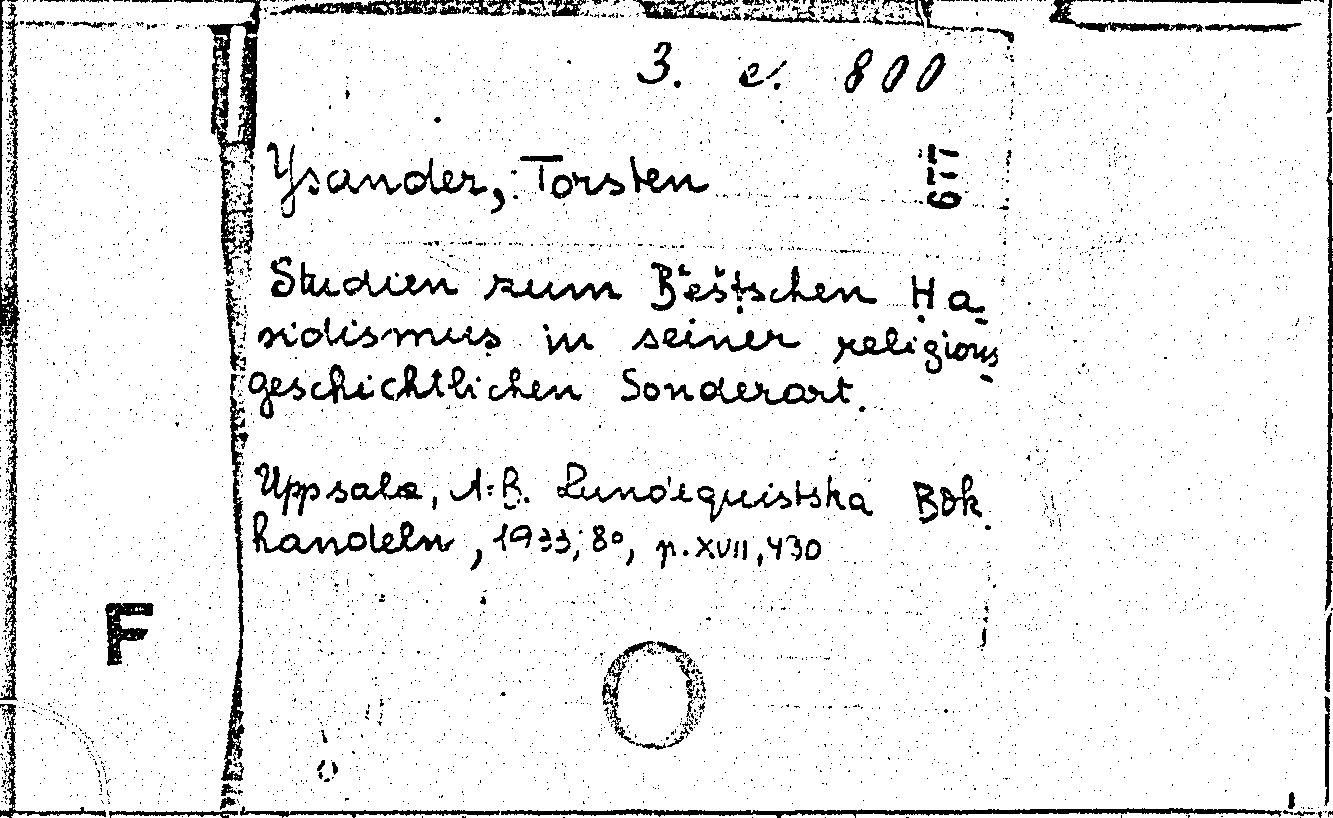 3. e. 800
677
Ysander, Torsten
Studien zum Bëštschen Ḥa-
sidismus in seiner religions-
geschichtlichen Sonderart.
Uppsala, A:B. Lundequistska Bok
handeln, 1933; 8°, p. XVII, 430
F